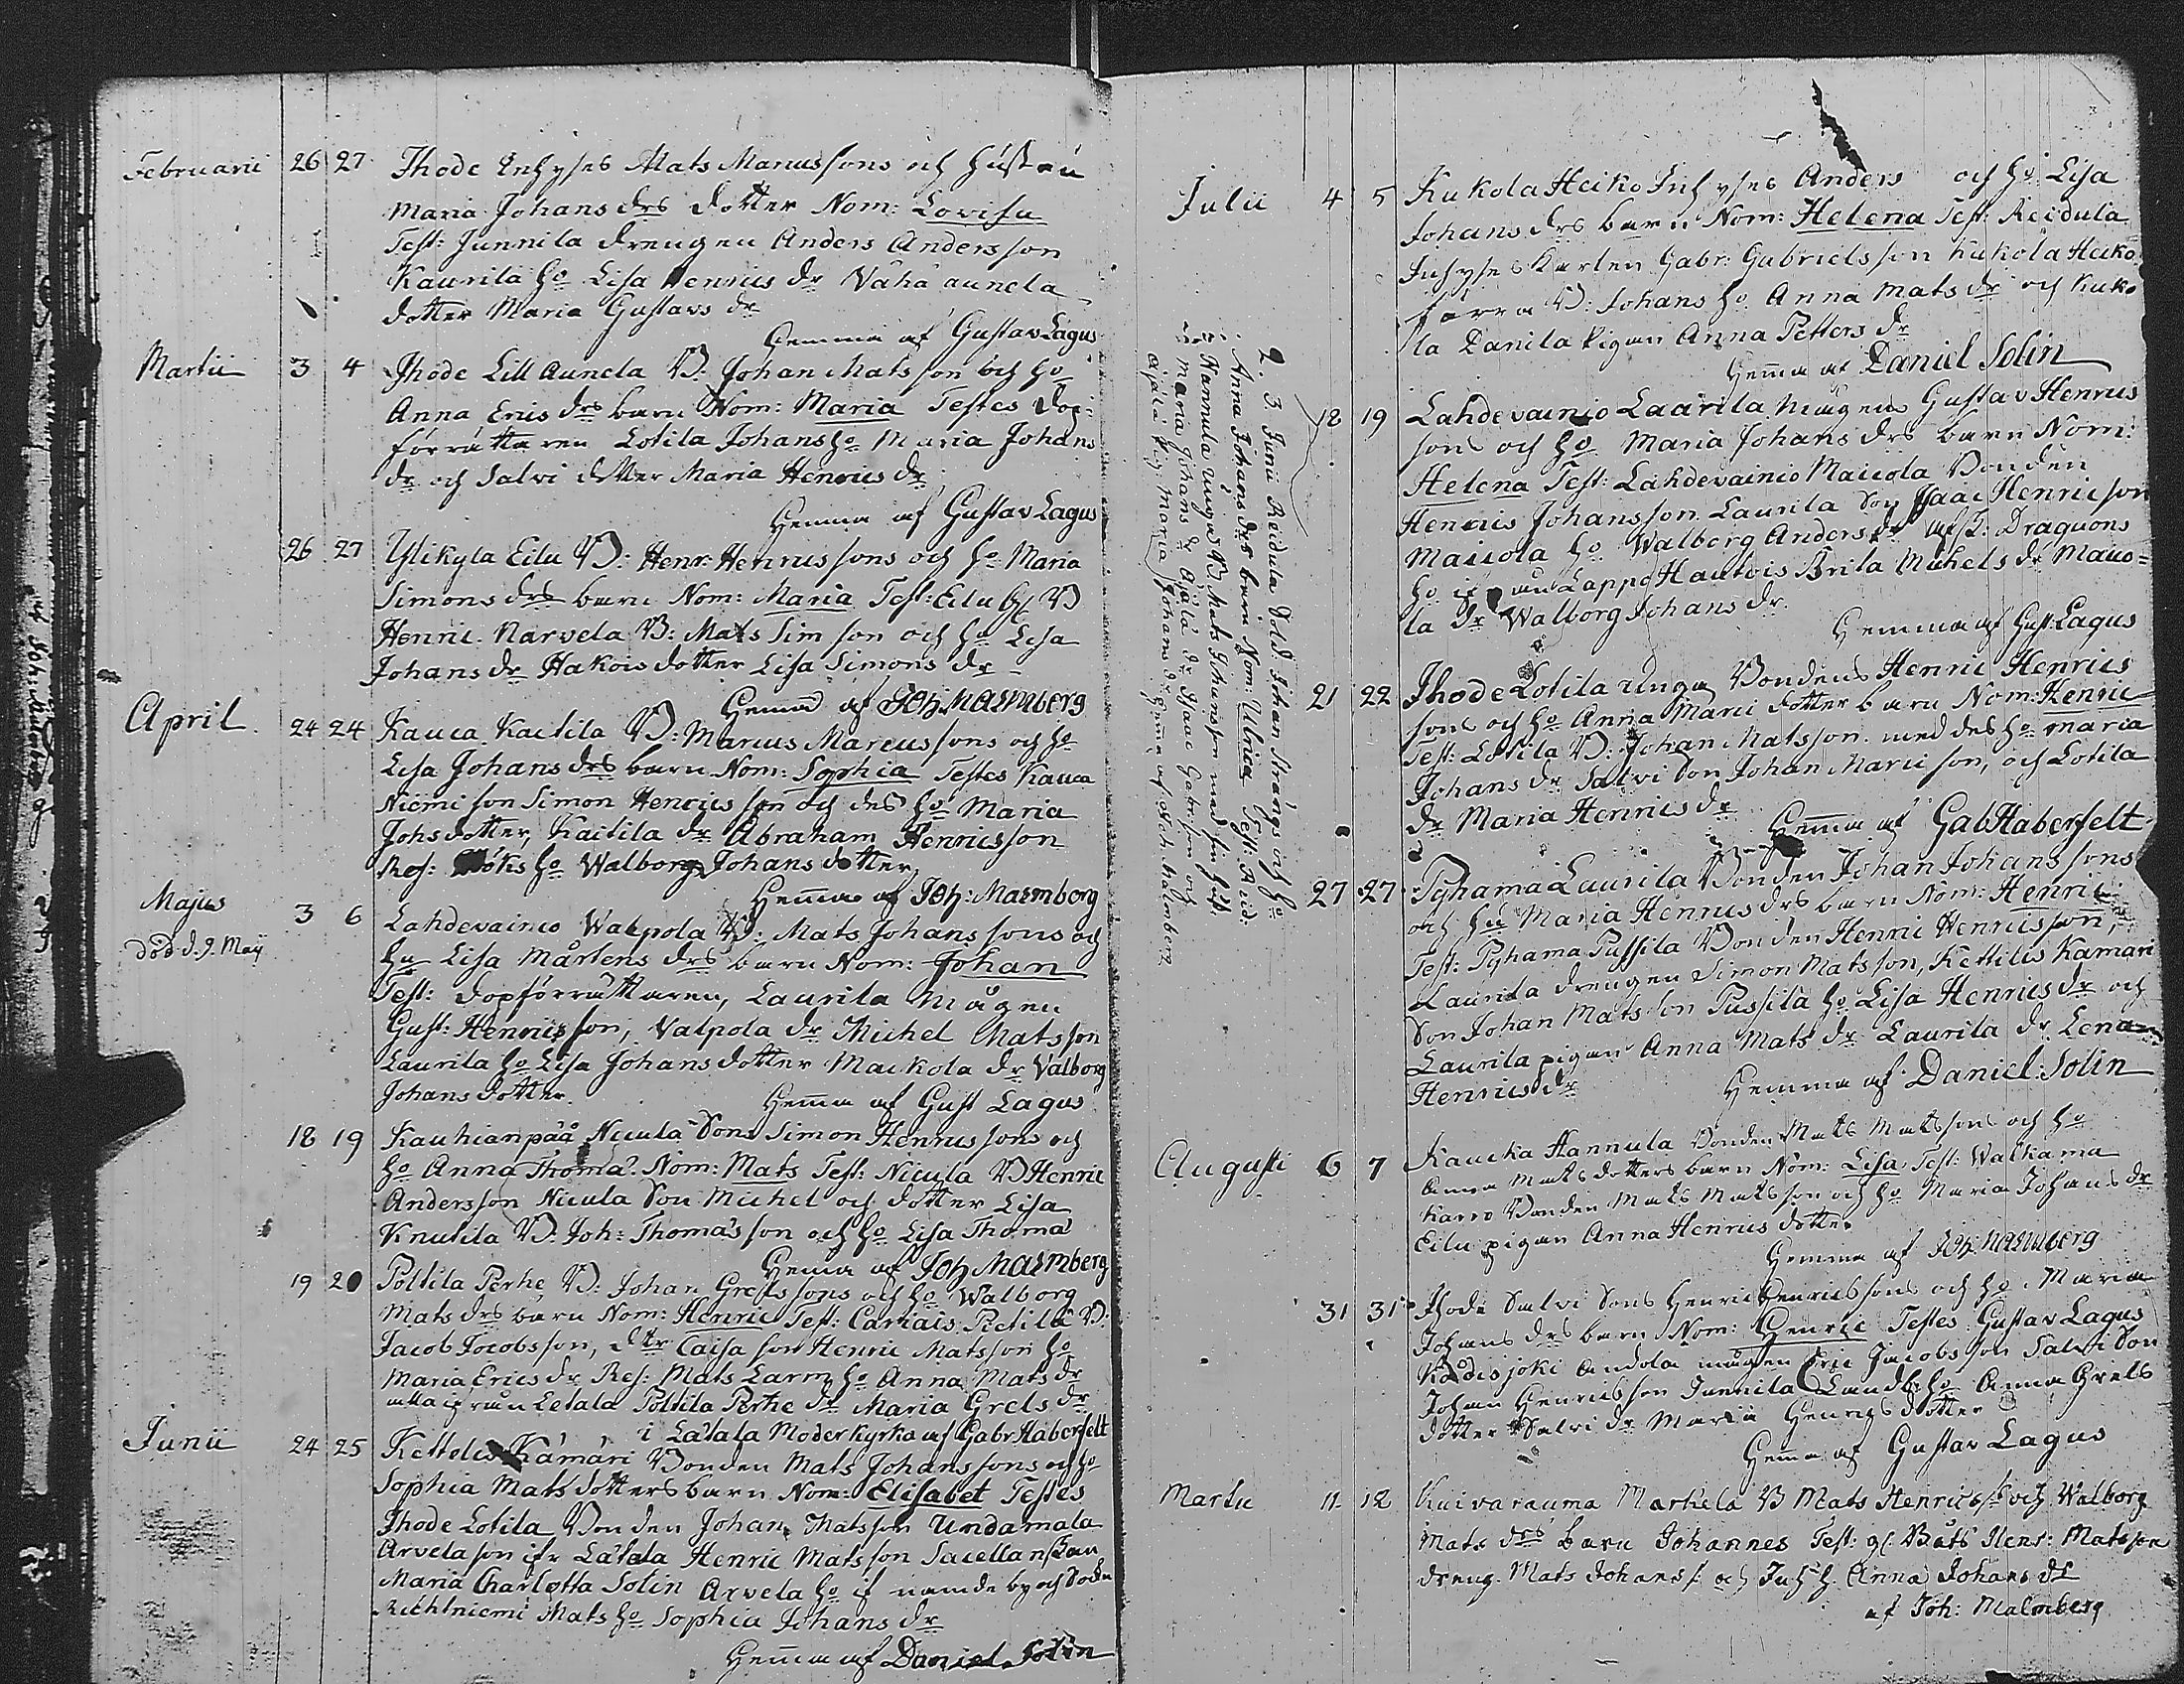 Februarii 26 27 Ihode Inhyses Mats Marcussons och Hustru
Maria Johans drs dotter Nom: Lovisa
Test: Junnila drengen Anders Andersson
Kaurila ho Lisa Henrics dr Vähä aunela
dotter Maria Gustavs dr
Hemma af Gustav Lagus
Martii 3 4 Ihode Lill Aunela B: Johan Matsson och ho
Anna Erics drs barn Nom: Maria Testes Dop-
förrättaren Lotila Johans ho Maria Johans
dr och Salvi dotter Maria Henrics dr
Hemma af Gustav Lagus
26 27 Ylikyla Eilu B: Henr: Henricssons och ho Maria
Simons drs barn Nom: Maria Test: Eilu B
Henric. Narvela B: Mats Simsson och ho Lisa
Johans dr Hakois dotter Lisa Simons dr
Hemma af Joh: Malmberg
April 24 24 Kauca Kaitila B: Marcus Marcussons och ho
Lisa Johans drs barn Nom: Sophia Testes Kauca
Niemi son Simon Henricsson och des ho Maria
Johsdotter, Kaitila dr Abraham Henricsson
Res: Höks ho Walborg Johans dotter
Hemma af Joh: Malmberg
Majus 3 6 Lahdevainio Walpola B: Mats Johanssons och
död d. 9. Maij
hu Lisa Mårtens drs barn Nom: Johan
Test: dopförrättaren, Laurila Mågen
Gust: Henricsson, Valpola dr Michel Matsson
Laurila ho Lisa Johans dotter Maikola dr Valborg
Johans dotter. Hemma af Gust Lagus
18 19 Kauhianpää Nicula Sons Simon Henricssons och
ho Anna Thomæ. Nom: Mats Test: Nicula B Henric
Andersson Nicula Son Michel och dotter Lisa
Knutila B. Joh: Thomasson och ho Lisa Thomæ
Hemma af Joh Malmberg
19 20 Poltila Perhe B: Johan Grelssons och ho Walborg
Mats drs barn Nom: Henric Test: Carhais Pietila B:
Jacob Jacobsson, Caisa son Henric Matsson ho
Maria Erics dr Res: Mats Larm ho Anna Mats dr
alla ifrån Letala Poltila Perhe dr Maria Grels dr
i Latala Moderkyrka af Gabr Haberfelt
Junii 24 25 Kettelis Kamari Bonden Mats Johanssons och ho
Sophia Mats dotters barn Nom: Elisabet Testes
Ihode Lotila Bonden Johan Matsson Undamala
Arvela son ifr Latala Henric Matsson Sacellanskan
Maria Charlotta Solin Arvela ho if namde by och Sockn
Riehtniemi Mats ho Sophia Johans dr
Hemma af Daniel Solin
2. 3. Junii Reidula Sold. Johan Strångs och ho
Anna Johans drs barn Nom: Ulrica Test: Reid:
Hannula unga B Mats Johansson med sin hust.
Maria Johans dr Äijälä dr Isaac Gabrson och
Äijälä pig: Maria Johans dr hemma af Joh. Malmberg
Julii 4 5 Kukola Heiko Inhyses Anders och ho Lisa
Johans drs barn Nom: Helena Test: Reidula
Inhyses Karlen Gabr: Gabrielsson Kukola Heiko
förra B: Johans ho Anna Mats dr och Kuko
la Danila Pigan Anna Petters dr
Hemma af Daniel Solin
18 19 Lahdevainio Laurila Mågens Gustav Henrics
sons och ho Maria Johans drs barn Nom:
Helena Test: Lahdevainio Maicola Bonden
Henrics Johansson Laurila Son Isaac Henricson
Maicola ho Walborg Anders dr afsk: Dragouns
ho Lappo Hautois Brita Michels dr Maico=
la dr Walborg Johans dr.
Hemma af Gust: Lagus
21 22 Ihode Lotila unga Bondens Henric Henrics
sons och ho Anna Marci dotter barn Nom: Henric
Test: Lotila B: Johan Matsson med des ho Maria
Johans dr Salvi Son Johan Marcison, och Lotila
dr Maria Henrics dr
Hemma af Gab Haberfelt
27 27 Pyhama Laurila Bonden Johan Johanssons
och hu Maria Henrics drs barn Nom: Henric
Test: Pyhama Pussila Bonden Henric Henricsson,
Laurila drengen Simon Matsson, Kettilis Kamari
Son Johan Matsson Pussila ho Lisa Henrics dr och
Laurila pigan Anna Mats dr Laurila dr Lena
Henrics dr Hemma af Daniel Solin
Augusti 6 7 Kaucka Hannula Bonden Mats Matssons och ho
Anna Matsdotters barn Nom: Lisa Test: Walkama
Karro Bonden Mats Matsson och ho Maria Johans dr
Eilu pigan Anna Henrics dotter
Hemma af Joh: Malmberg
31 31 Ihode Salvi Sons Henric Henricssons och ho Maria
Johans drs barn Nom: Henric Testes Gustav Lagus
Kodisjoki Andola mågen Eric Jacobsson Salvi Son
Johan Henricsson Junnila Landb: ho Anna Grels
dotter Salvi dr Maria Henrics dotter
Hemma af Gustav Lagus
Martii 11 12 Kuivarauma Markela B Mats Henricss: och Walborg
Mats drs barn Johannes Test: gl: Båts Henr: Matsson
dreng. Mats Johanss: och Inh h. Anna Johans dr
af Joh: Malmberg